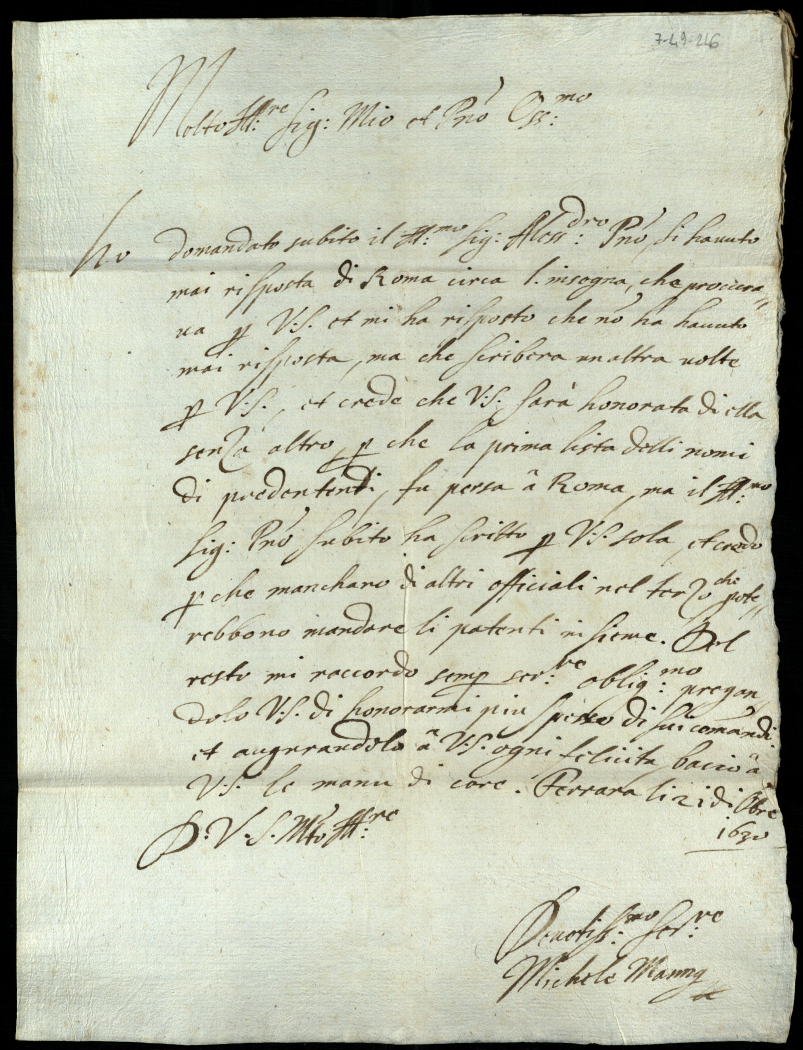 7-49-216
Molto Ill:re Sig: Mio et Pnò Oss:mo
Ho domandato subito il Ill:mo Sig: Aless:dro Pnò, si hauuto
mai risposta di Roma circa l'insegna, che procura„
ua p V:S. et mi ha risposto che nò ha hauuto
mai risposta, ma che scribera un altra uolte
p V:S., et crede che V:S. sarà honorata di ella
senza altro, p che la prima lista delli nomi
di predentendi, fu persa à Roma, ma il Ill:mo
Sig: Pnò subito ha scritto p V:S. sola, et credo
p che mancharo di altri officiali nel terzo che pote„
rebbono mandare li patenti insieme. Del
resto mi raccordo semp ser:re oblig:mo pregan„
dolo V:S. di honorarmi piu spesso di sui comandi
et augurandolo à V:S. ogni felicita, baccio à
V:S. le manu di core. Ferrara li 21 di 8bre
1630
D: V:S. Mto Ill:re
Deuotiss:mo Ser:re
Michele Manng